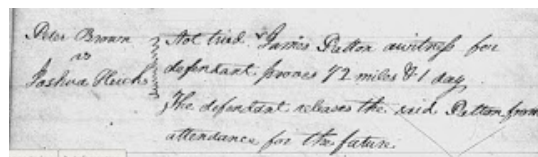 Peter Brown
vs
Joshua
Not tried & James Patton a witness for
defendant proves 72 miles & 1 day
The defendant releases the said Patton from
attendance for the future